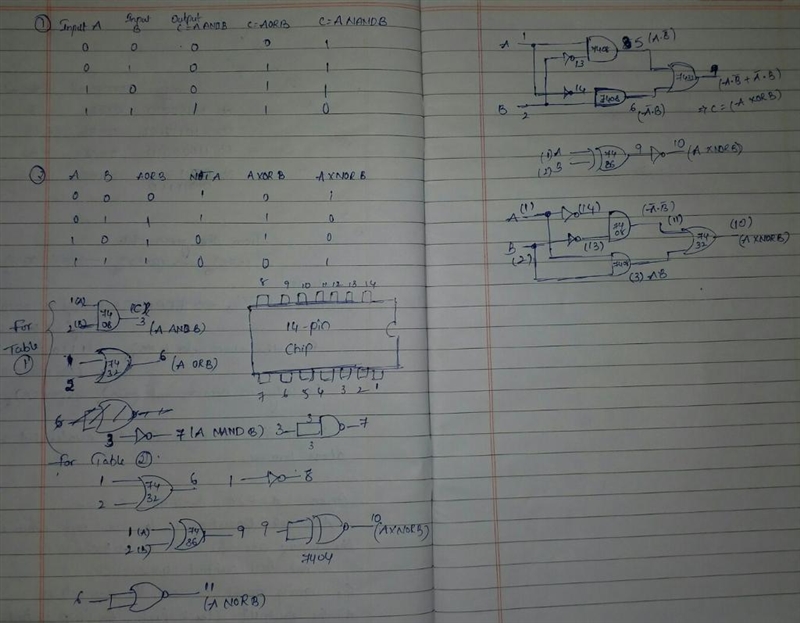 ① Input A Input B Output C=A AND B C=A OR B C=A NAND B
0 0 0 0 1
0 1 0 1 1
1 0 0 1 1
1 1 1 1 0
② A B A OR B NOT A A XOR B A XNOR B
0 0 0 1 0 1
0 1 1 1 1 0
1 0 1 0 1 0
1 1 1 0 0 1
For Table ①
1(A) 2(B) 74 08 3 (A AND B)
1 2 74 32 6 (A OR B)
3 7 (A NAND B) 3 3 7
8 9 10 11 12 13 14
14-pin chip
7 6 5 4 3 2 1
for Table ②
1 2 74 32 6 1 8
1(A) 2(B) 74 86 9 9 10 (A XNOR B)
7404
6 11 (A NOR B)
A 1 13 7408 5 (A·B̅)
7432 9 (A·B̅ + A̅·B)
14 7408
B 2 6 (A̅·B) C = (A XOR B)
(1) A (2) B 74 86 9 10 (A XNOR B)
A (1) (14) 74 08 (A̅·B̅) (11)
B (2) (13) 74 32 (10) (A XNOR B)
(3) AB